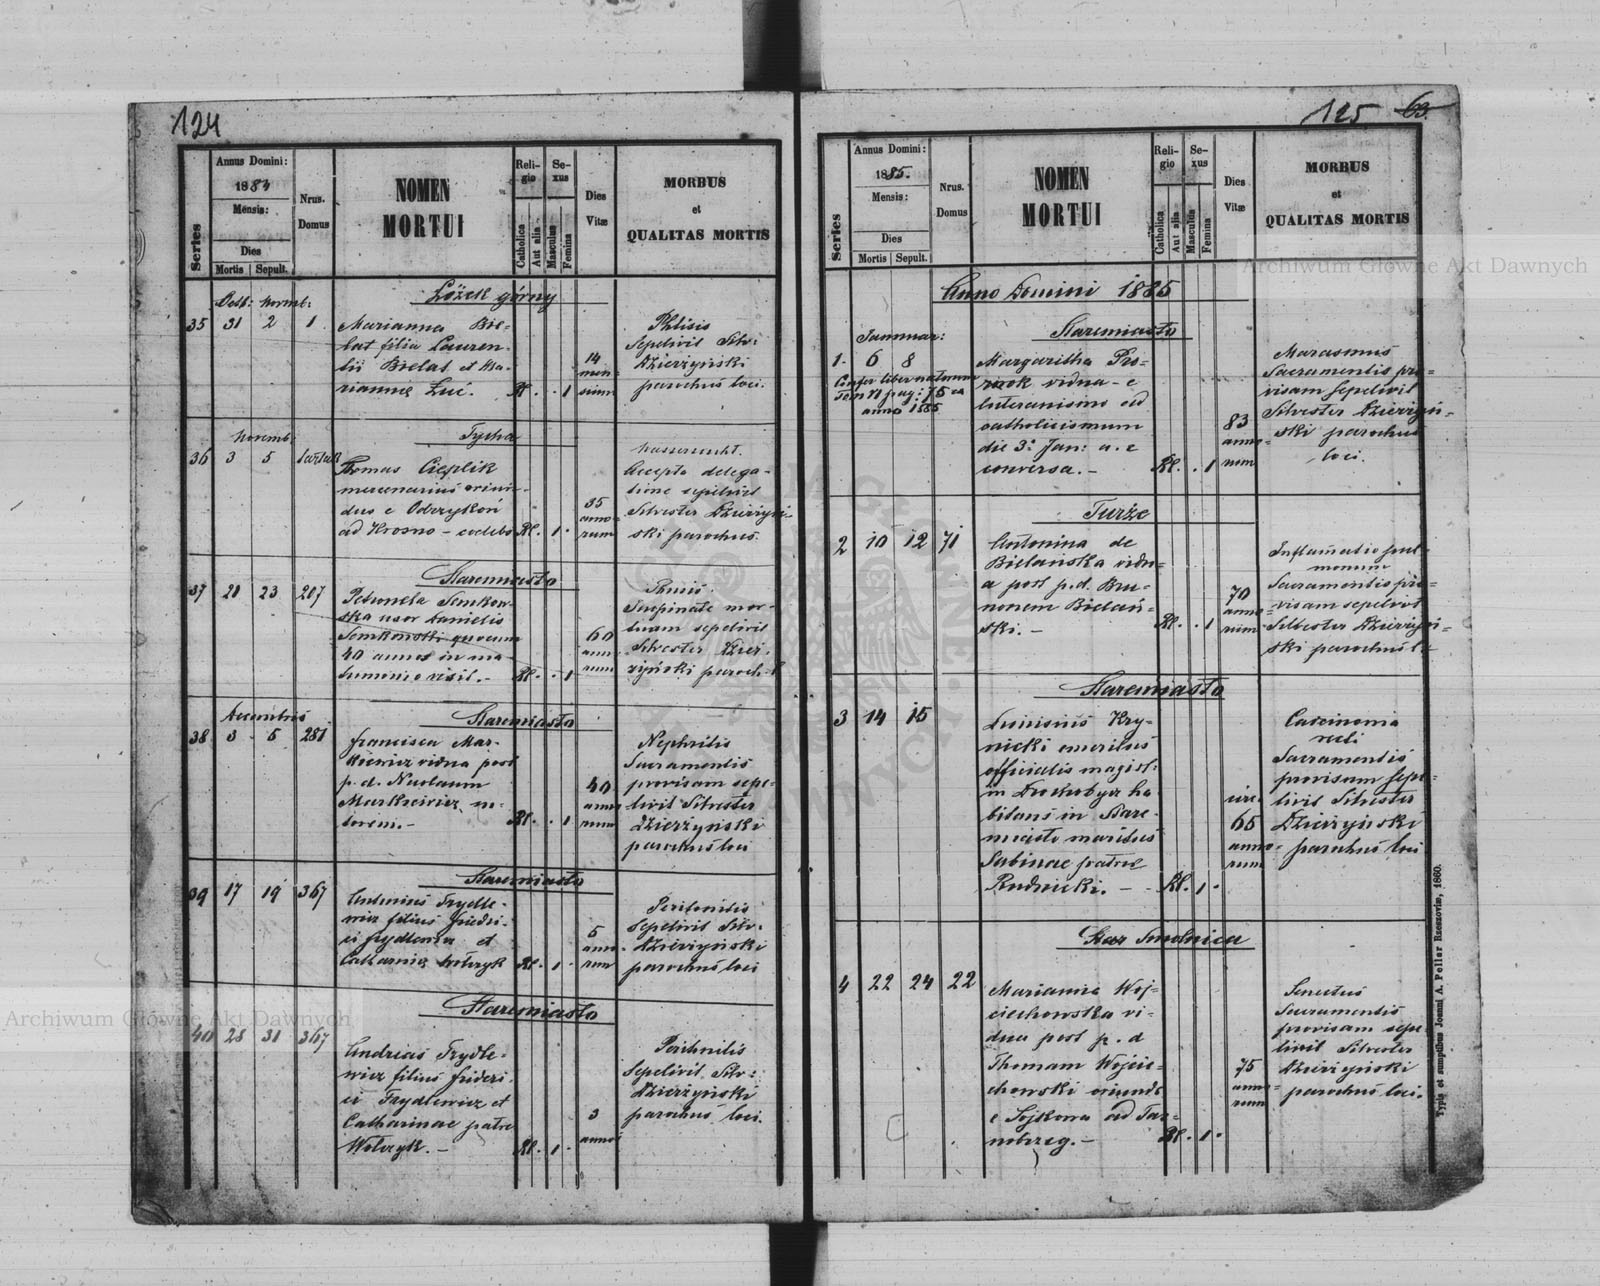 124
Series
Annus Domini:
1884
Mensis:
Dies
Mortis Sepult.
Nrus. Domus
NOMEN
MORTUI
Reli-
gio
Catholica
Aut alia
Se-
xus
Masculus
Femina
Dies
Vitæ
MORBUS
et
QUALITAS MORTIS
Łożek górny
35 31 2 1
Marianna Bie-
lat filia Lauren-
tii Bielat et Ma-
riannę Luć.
Rl. 1
14
men-
sium
Phtisis
Sepelivit Silv:
Dzierżyński
parochus loci.
Novemb:
Tycha
36 3 5 tartak
Thomas Cieplik
mercenarius oriun-
dus e Odrzykoń
ad Krosno - coelebs
Rl. 1
35
anno-
rum
Accepta delega-
tione sepelivit
Silvester Dzierżyń-
ski parochus.
Staremiasto
37 21 23 207
Petronela Semkow-
ska uxor Danielis
Semkowski quocum
40 annos in ma-
trimonio vixit.-
Rl. 1
60
anno
rum
mor-
tuam sepelivit
Silvester Dzier-
żyński paroch. l
Decembris
Staremiasto
38 3 5 281
Francisca Mar-
kiewicz vidua post
p. d. Nicolaum
Markiewicz
Rl. 1
40
anno
rum
Nephritis
Sacramentis
provisam sepe-
livit Silvester
Dzierżyński
parochus loci
Staremiasto
39 17 19 367
Antonius Frydle-
wicz filius Frideri-
ci Frydlewicz et
Catharinę Wolczyk
Rl. 1
5
anno
rum
Peritonitis
Sepelivit Silv.
Dzierżyński
parochus loci
Staremiasto
40 28 31 367
Andreas Frydle-
wicz filius Frideri-
ci Frydlewicz et
Catharinae patre
Wolczyk.-
Rl. 1
3
annor
Peritonitis
Sepelivit Silv:
Dzierżyński
parochus loci.
125 63.
Series
Annus Domini:
1885.
Mensis:
Dies
Mortis Sepult.
Nrus.
Domus
NOMEN
MORTUI
Reli-
gio
Catholica
Aut alia
Se-
xus
Masculus
Femina
Dies
Vitæ
MORBUS
et
QUALITAS MORTIS
Anno Domini 1885
Januuar:
Staremiasto
1. 6 8
Confer liber natorum
Tom VI pag: 75 ex
anno 1885
Margaritha
vidua - e
luteranismo ad
catholicismum
die 3: Jan: a. c
conversa.-
Rl. 1
83
anno-
rum
Marasmus
Sacramentis pro-
visam sepelivit
Silvester Dzierżyń-
ski parochus
loci.
Turże
2 10 12 71
Antonina de
Bielańska vidu-
a post p. d. Bru-
nonem Bielań-
ski.-
Rl. 1
70
anno-
rum
Inflamatio pul-
monum
Sacramentis pro-
visam sepelivit
Silvester Dzierżyń-
ski parochus l.
Staremiasto
3 14 15
Kry-
nicki emeritus
officialis magist:
in Drohobycz ha
bitans in Stare-
miasto maritus
Sabinae patre
Rudnicki.-
Rl. 1
circ.
65
anno-
rum
Carcinoma
recti
Sacramentis
provisum sepe-
livit Silvester
Dzierżyński
parochus loci
Star Smolnica
4 22 24 22
Marianna Woj-
ciechowska vi-
dua post p. d
Thomam Wojcie-
chowski oriunda
e Sojkowa ad Tar-
nobrzeg.-
Rl. 1
75
anno-
rum
Senectus
Sacramentis
provisam sepe
livit Silvester
Dzierżyński
parochus loci.
Typis et sumptibus Joanni A. Pellar Rzeszoviæ, 1860.
Archiwum Główne Akt Dawnych
Archiwum Główne Akt Dawnych